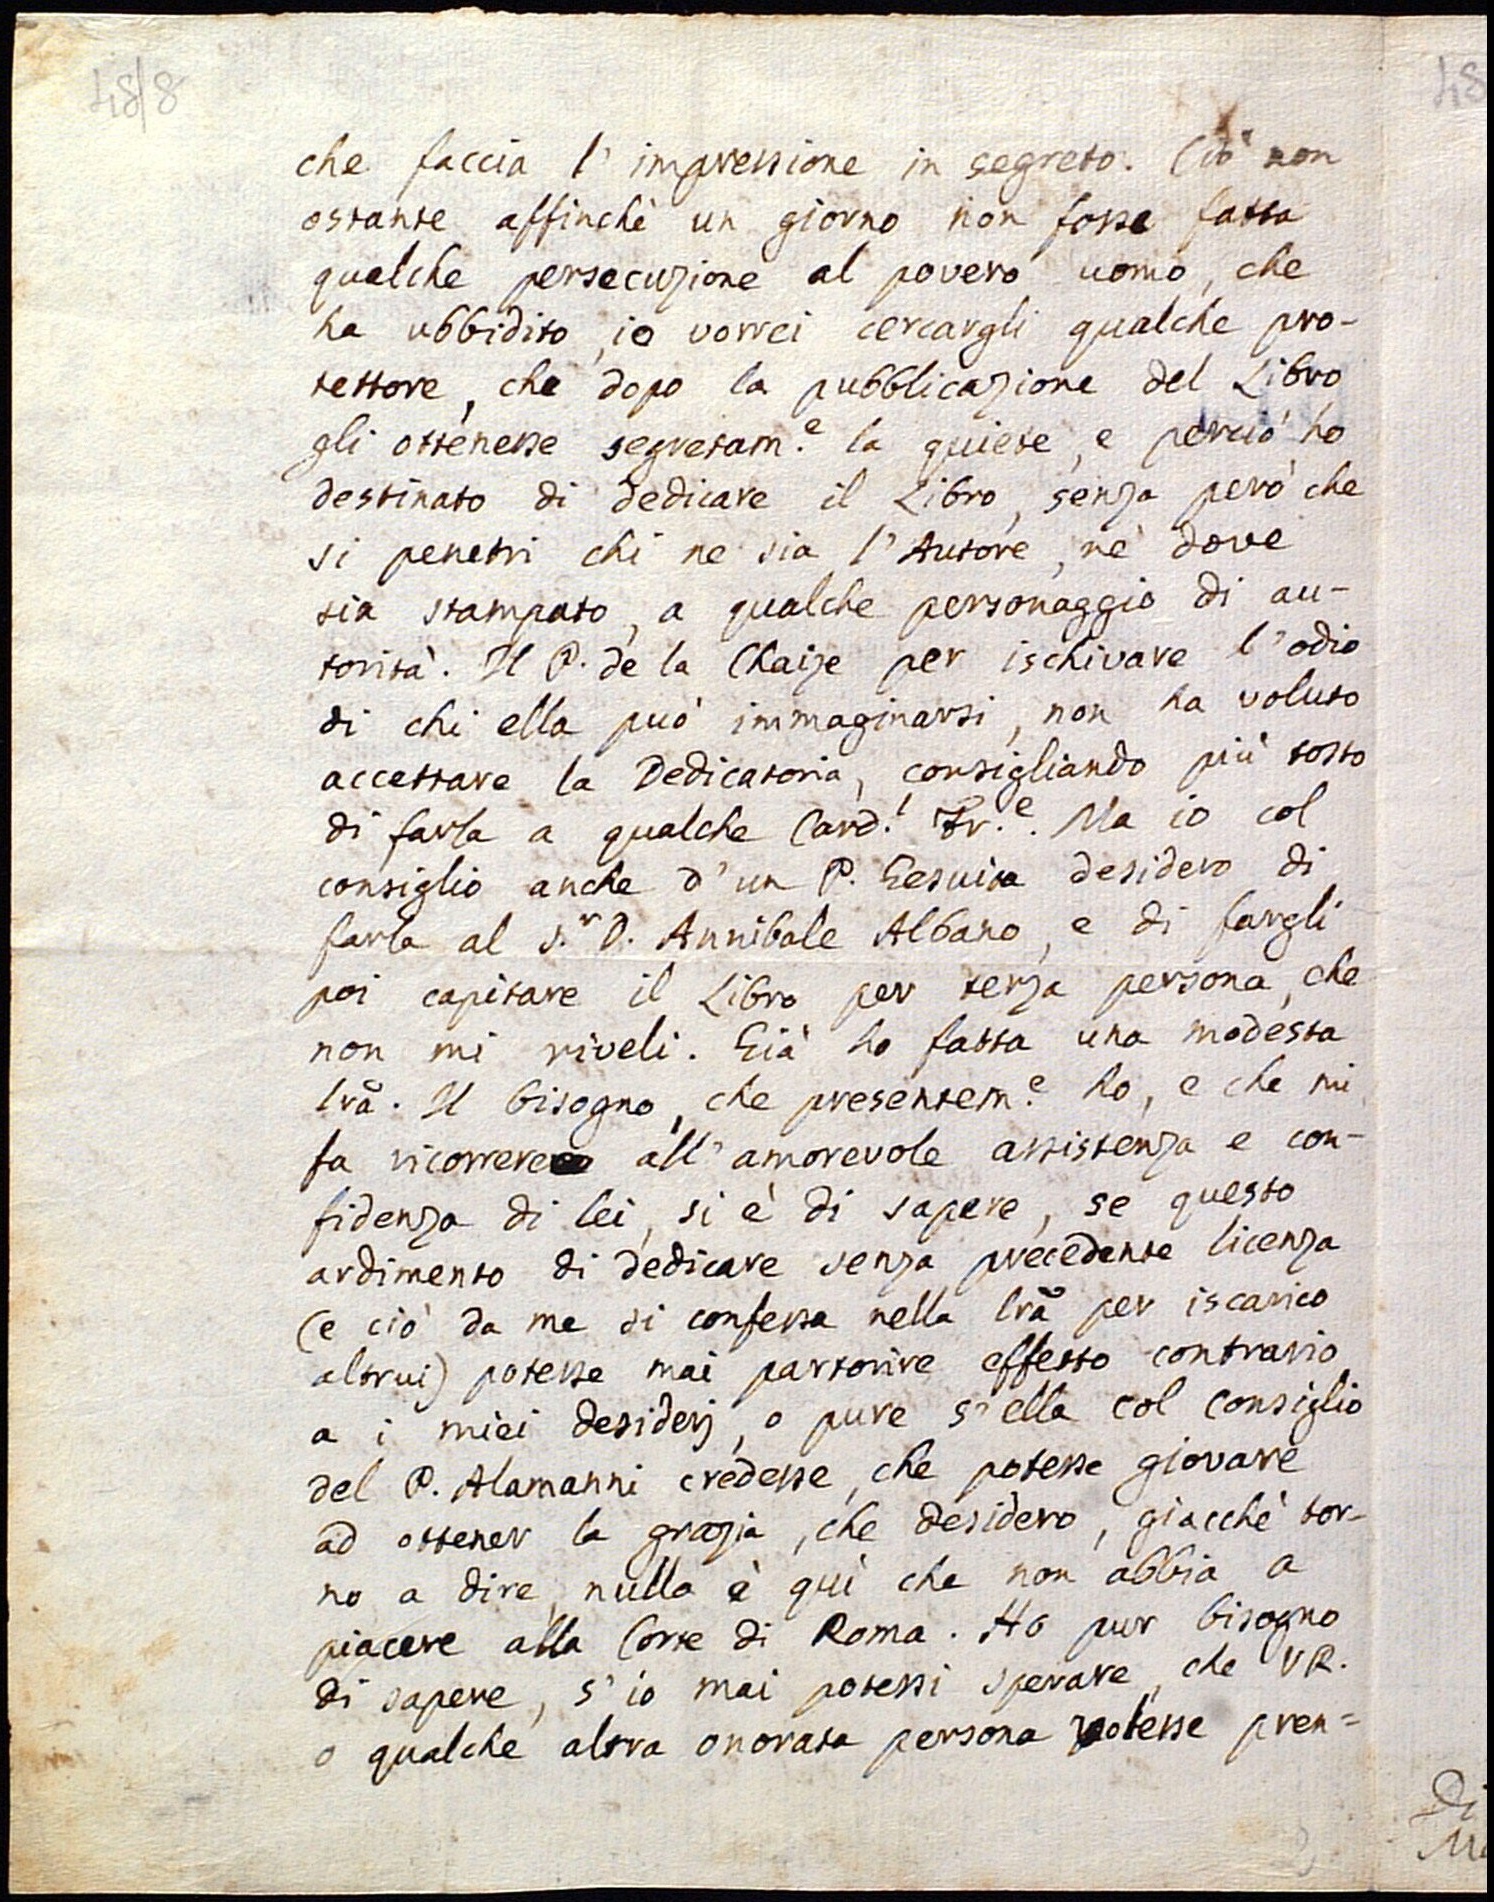 48/8
48
che faccia l'impressione in segreto. Ciò non
ostante affinchè un giorno non fosse fatta
qualche persecuzione al povero uomo, che
ha ubbidito, io vorrei cercargli qualche pro-
tettore, che dopo la pubblicazione del Libro
gli ottenesse segretam.e la quiete, e perciò ho
destinato di dedicare il Libro, senza però che
si penetri chi ne sia l'Autore, nè dove
sia stampato, a qualche personaggio di au-
torità. Il P. de la Chaize per ischivare l'odio
di chi ella può immaginarsi, non ha voluto
accettare la Dedicatoria, consigliando più tosto
di farla a qualche Card.l Fr.e. Ma io col
consiglio anche d'un P. Gesuita desidero di
farla al S.r D. Annibale Albano, e di fargli
poi capitare il Libro per terza persona, che
non mi riveli. Già ho fatta una modesta
lrã. Il bisogno, che presentem.e ho, e che mi
fa ricorrere all'amorevole assistenza e con-
fidenza di lei, si è di sapere, se questo
ardimento di dedicare senza precedente licenza
(e ciò da me si confessa nella lrã per iscarico
altrui) potesse mai partorire effetto contrario
a i miei desiderj, o pure s'ella col consiglio
del P. Alamanni credesse, che potesse giovare
ad ottener la grazia, che desidero, giacchè tor-
no a dire, nulla è quì che non abbia a
piacere alla Corte di Roma. Ho pur bisogno
di sapere, s'io mai potessi sperare, che VR.
o qualche altra onorata persona potesse pren=
Di